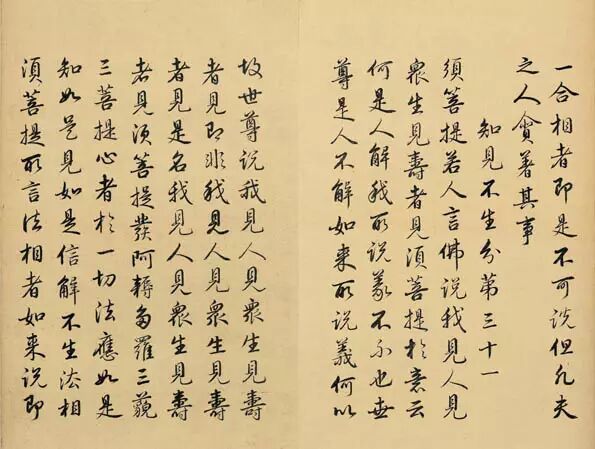 一合相者即是不可说但凡夫
之人貪著其事
知見不生分第三十一
須菩提若人言佛说我見人見
衆生見壽者見須菩提於意云
何是人解我所说義不不也世
尊是人不解如来所说義何以
故世尊说我見人見衆生見壽
者見即非我見人見衆生見壽
者見是名我見人見衆生見壽
者見須菩提發阿耨多羅三藐
三菩提心者於一切法應如是
知如是見如是信解不生法相
須菩提所言法相者如来说即